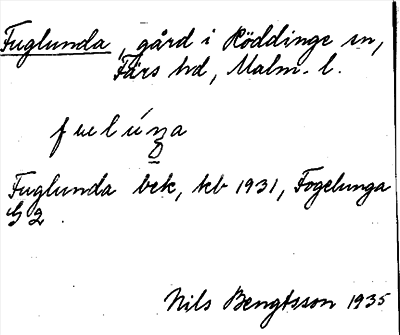 Fuglunda, gård i Röddinge sn,
Färs hd, Malm. l.
Fuglunda bek, tkb 1931, Fogelunga
G 2.
Nils Bengtsson 1935